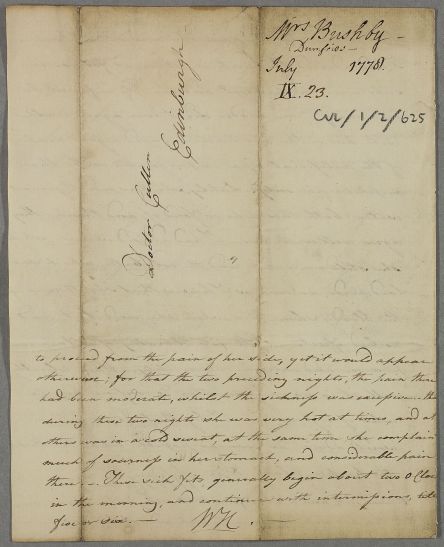 Mrs Bushby -
Dumfries -
July 1778.
IX. 23.
Cul/1/2/625
Doctor Cullen
Edinburgh
to proceed from the pain of her side, yet it would appear
otherwise; for that the two preceding nights, the pain there
had been moderate, whilst the sickness was excessive. -
during these two nights she was very hot at times, and at
others was in a cold sweat, at the same time she complain
much of sourness in her stomach, and considerable pain
there. - These sick fits generally begin about two o Cloc
in the morning, and continue with intermissions, till
five or six. -
WH.